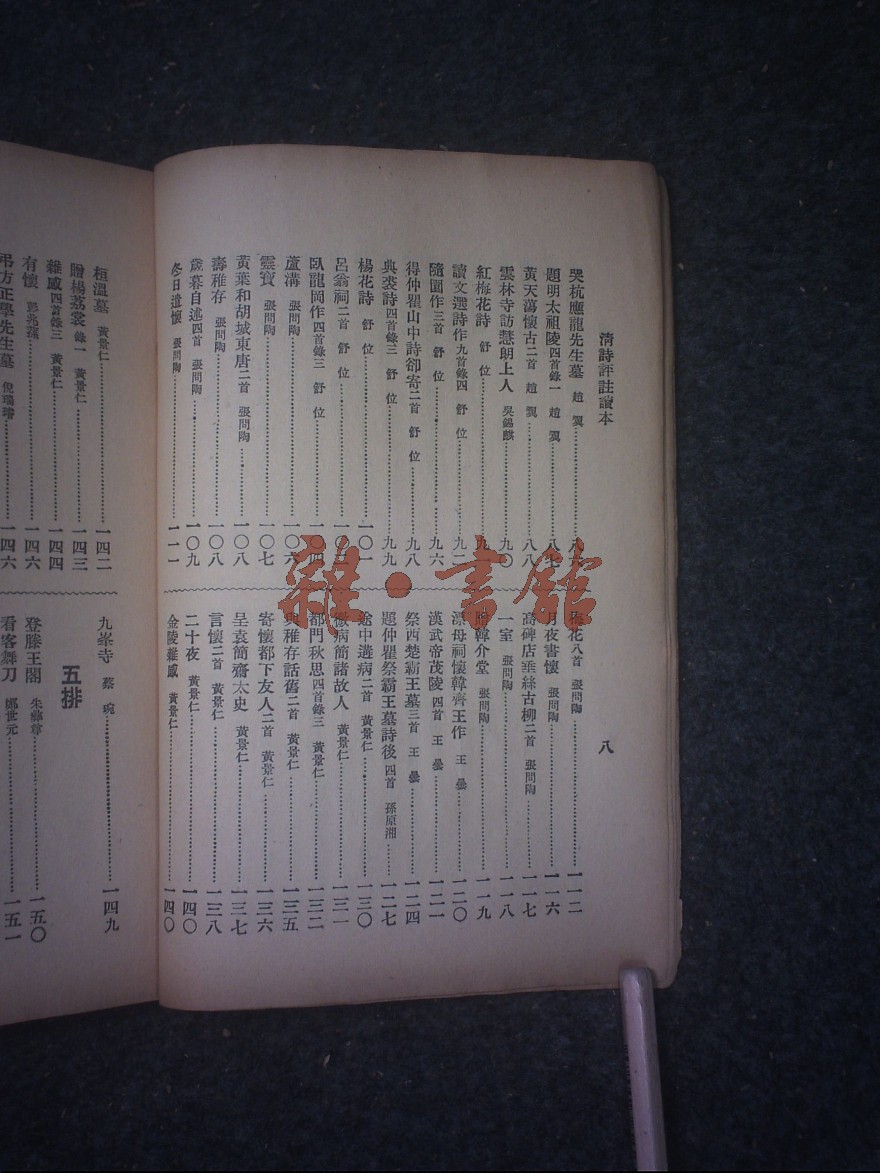 清詩評註讀本
八
哭杭應龍先生墓 趙翼
題明太祖陵 四首錄一 趙翼 八七
黃天蕩懷古 二首 趙翼 八八
雲林寺訪慧朗上人 吳錫麒 九〇
紅梅花詩 舒位
讀文選詩作 九首錄四 舒位 九二
隨園作 三首 舒位 九六
得仲瞿山中詩卻寄 二首 舒位 九八
典裘詩 四首錄三 舒位 九九
楊花詩 舒位 一〇一
呂翁祠 二首 舒位 一〇三
臥龍岡作 四首錄三 舒位 一〇四
蘆溝 張問陶 一〇六
靈寶 張問陶 一〇七
黃葉和胡城東唐 二首 張問陶 一〇八
壽稚存 張問陶 一〇八
歲暮自述 四首 張問陶 一〇九
冬日遣懷 張問陶 一一一
梅花 八首 張問陶 一一二
月夜書懷 張問陶 一一六
高碑店垂絲古柳 二首 張問陶 一一七
一室 張問陶 一一八
贈韓介堂 張問陶 一一九
漂母祠懷韓齊王作 王曇 一二〇
漢武帝茂陵 四首 王曇 一二一
祭西楚霸王墓 三首 王曇 一二四
題仲瞿祭霸王墓詩後 四首 孫原湘 一二七
途中遘病 二首 黃景仁 一三〇
微病簡諸故人 黃景仁 一三一
都門秋思 四首錄三 黃景仁 一三二
與稚存話舊 二首 黃景仁 一三五
寄懷都下友人 二首 黃景仁 一三六
呈袁簡齋太史 黃景仁 一三七
言懷 二首 黃景仁 一三八
二十夜 黃景仁 一四〇
金陵雜感 黃景仁 一四〇
桓溫墓 黃景仁 一四二
贈楊荔裳 錄一 黃景仁 一四三
雜感 四首錄三 黃景仁 一四四
有懷 彭兆蓀 一四六
弔方正學先生墓 倪瑞璿 一四六
九峯寺 蔡琬 一四九
五排
登滕王閣 朱彝尊 一五〇
看客舞刀 鄭世元 一五一
雜·書館